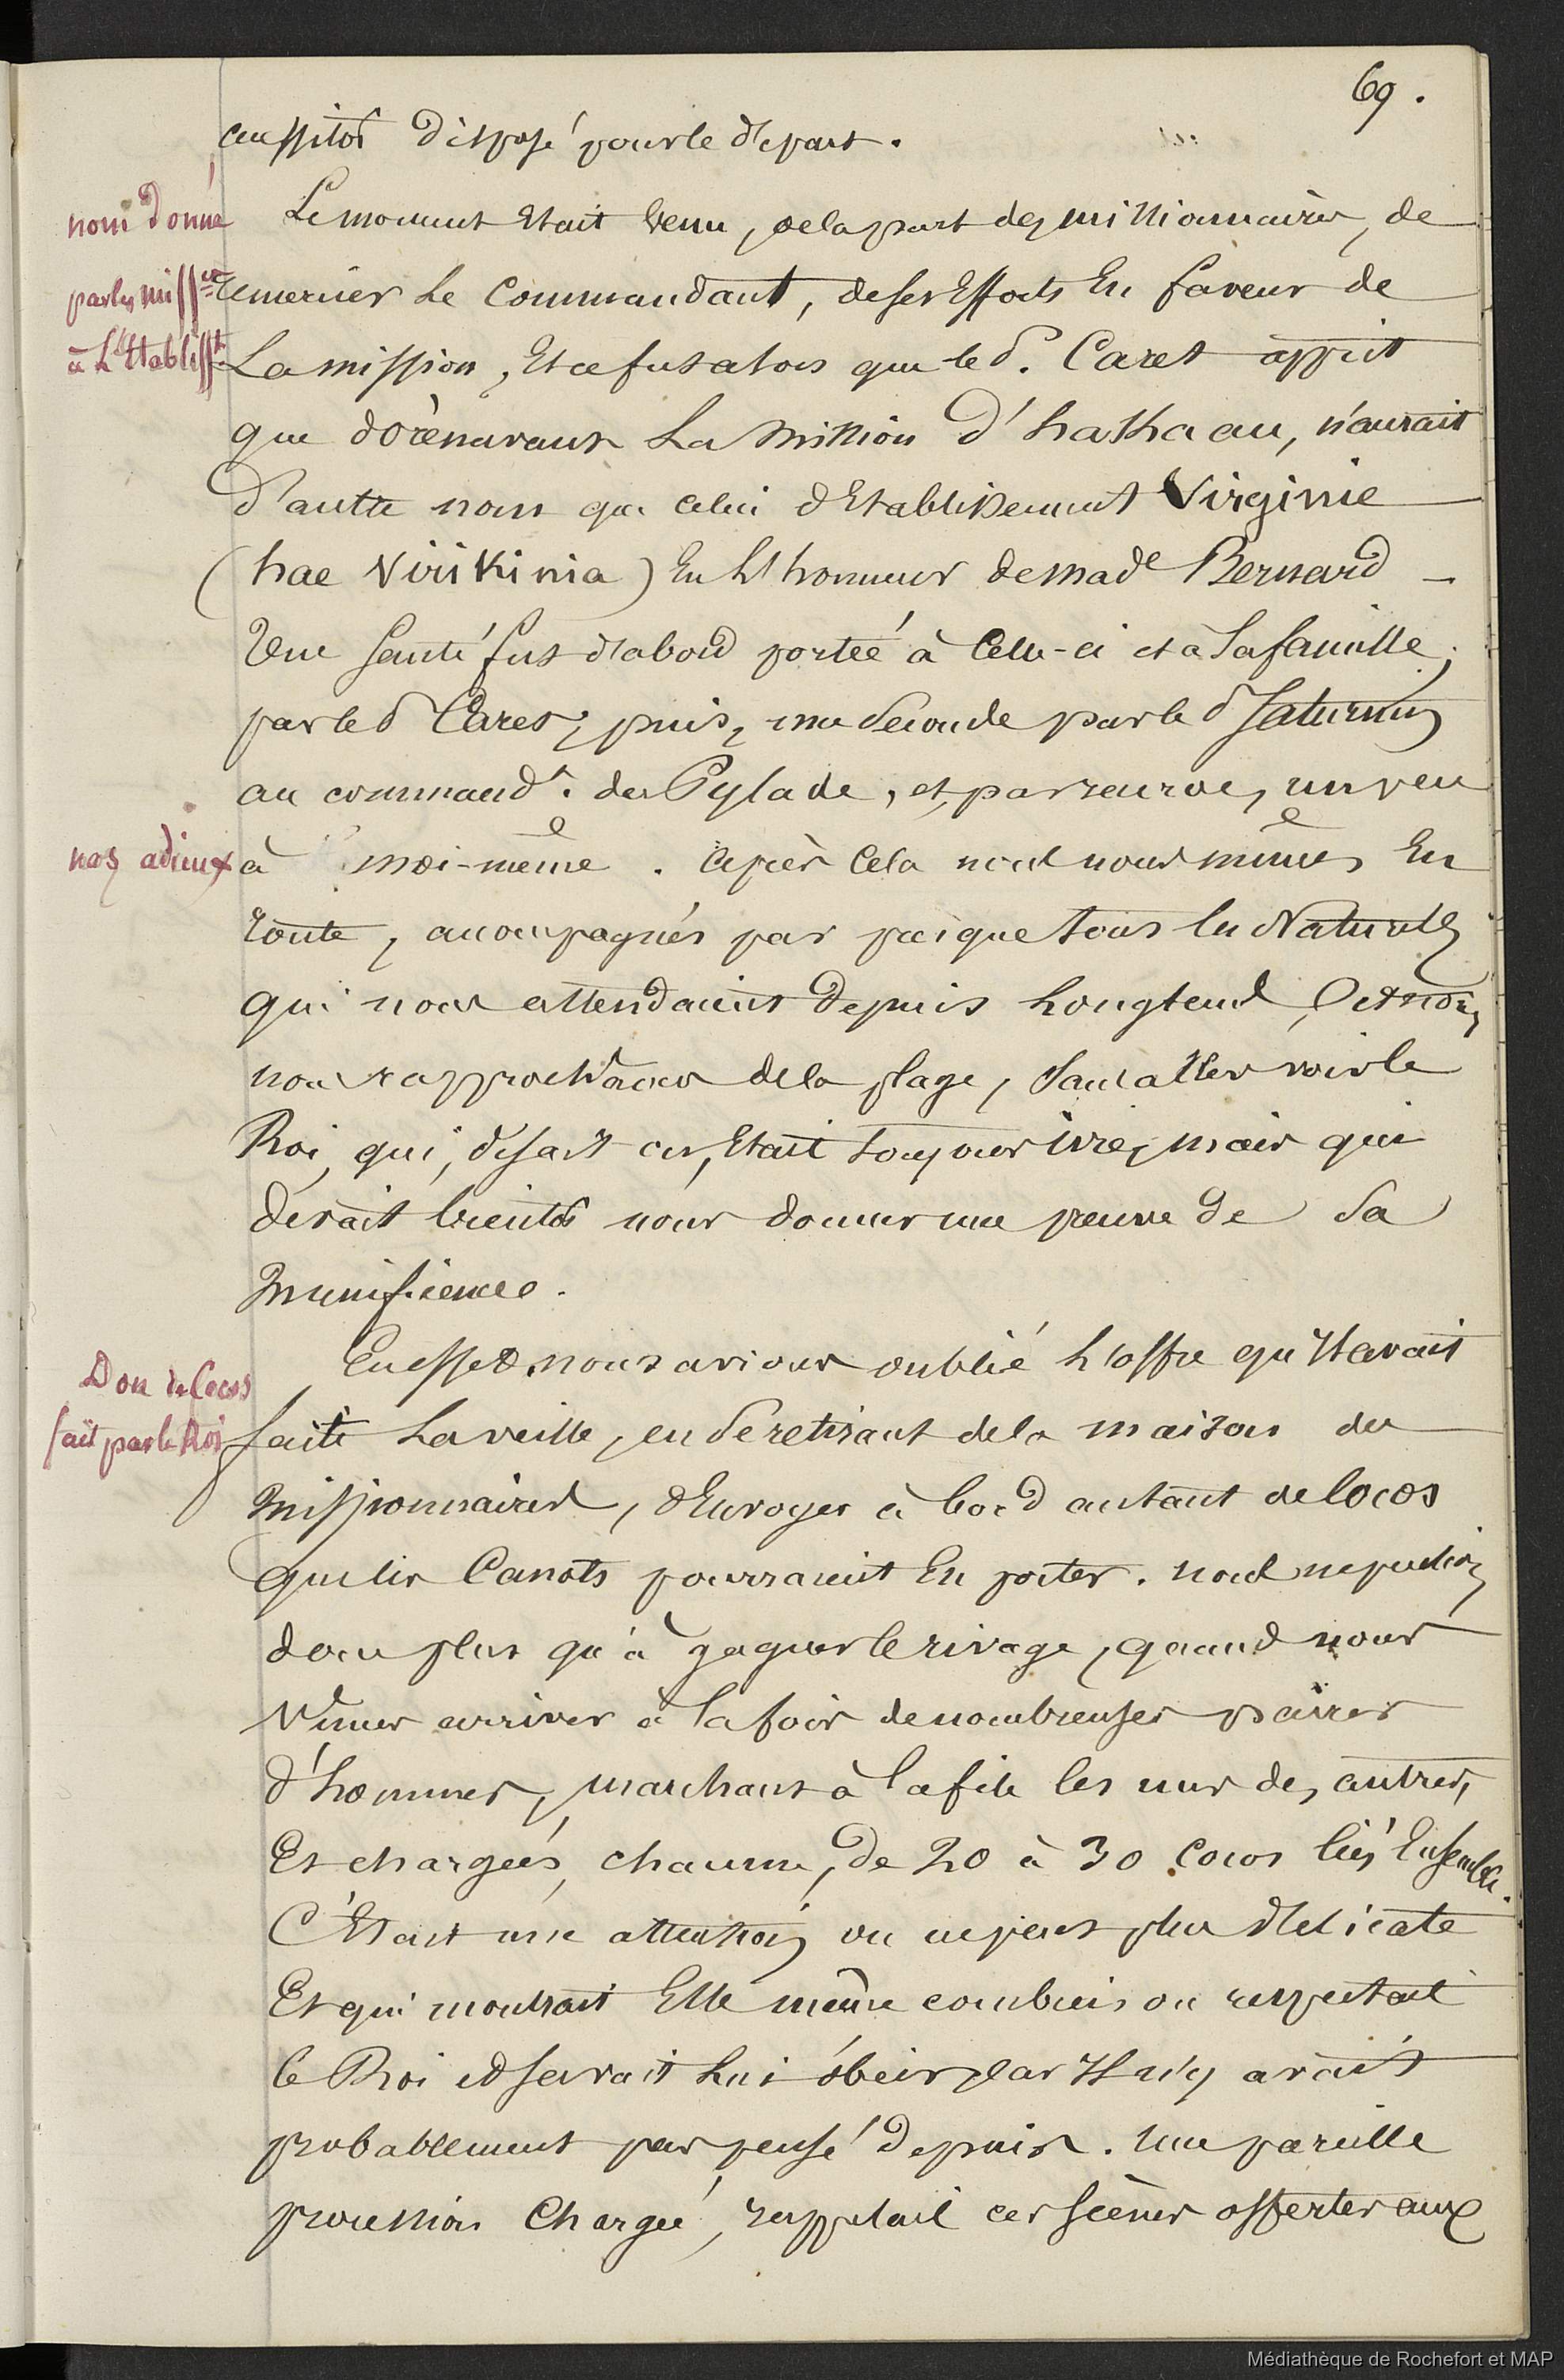 69.
aussitôt disposé pour le départ.
nom donné
par les miss.res
à l'Etablisst.
Le moment Etait venu, de la part des missionnaires, de
remercier le Commandant, de ses Efforts En faveur de
La mission, Et ce fut alors que le d. Caret apprit
que dorénavant La Mission d'hakhaau, n'aurait
d'autre nom que celui d'Etablissement Virginie
(hae Virikinia) En l'honneur de made Bernard -
Une Santé fut d'abord portée à Celle-ci et à Sa famille,
par le d Caret, puis, une Seconde par le d Saturnin
au command.t du Pylade, et, par retour, un peu
nos adieux
à moi-même. Après Cela nous nous mîmes En
route, accompagnés par presque tous les Naturels
qui nous attendaient depuis Longtems, et nous
nous rapprochâmes de la plage, Sans aller voir le
Roi, qui, disait-on, Etait toujours ivre, mais qui
devait bientôt nous donner une preuve de Sa
Munificence.
Don de Cocos
fait par le Roi
En effet, nous avions oublié l'offre qu'Il avait
faite La veille, en Se retirant de la maison des
Missionnaires, d'Envoyer à bord autant de Cocos
que les Canots pourraient En porter. nous ne pensions
donc plus qu'à gagner le rivage, quand nous
Vîmes arriver à la fois de nombreuses paires
d'hommes, marchant à la file les uns des autres,
Et chargées, chacune, de 20 à 30 Cocos liés Ensemble.
C'Etait une attention on ne peut plus délicate
Et qui montrait Elle même combien on respectait
le Roi et savait Lui obéir, car Il n'y avait
probablement pas pensé depuis. Une pareille
procession Chargée, rappelait ces Scènes offertes aux
Médiathèque de Rochefort et MAP